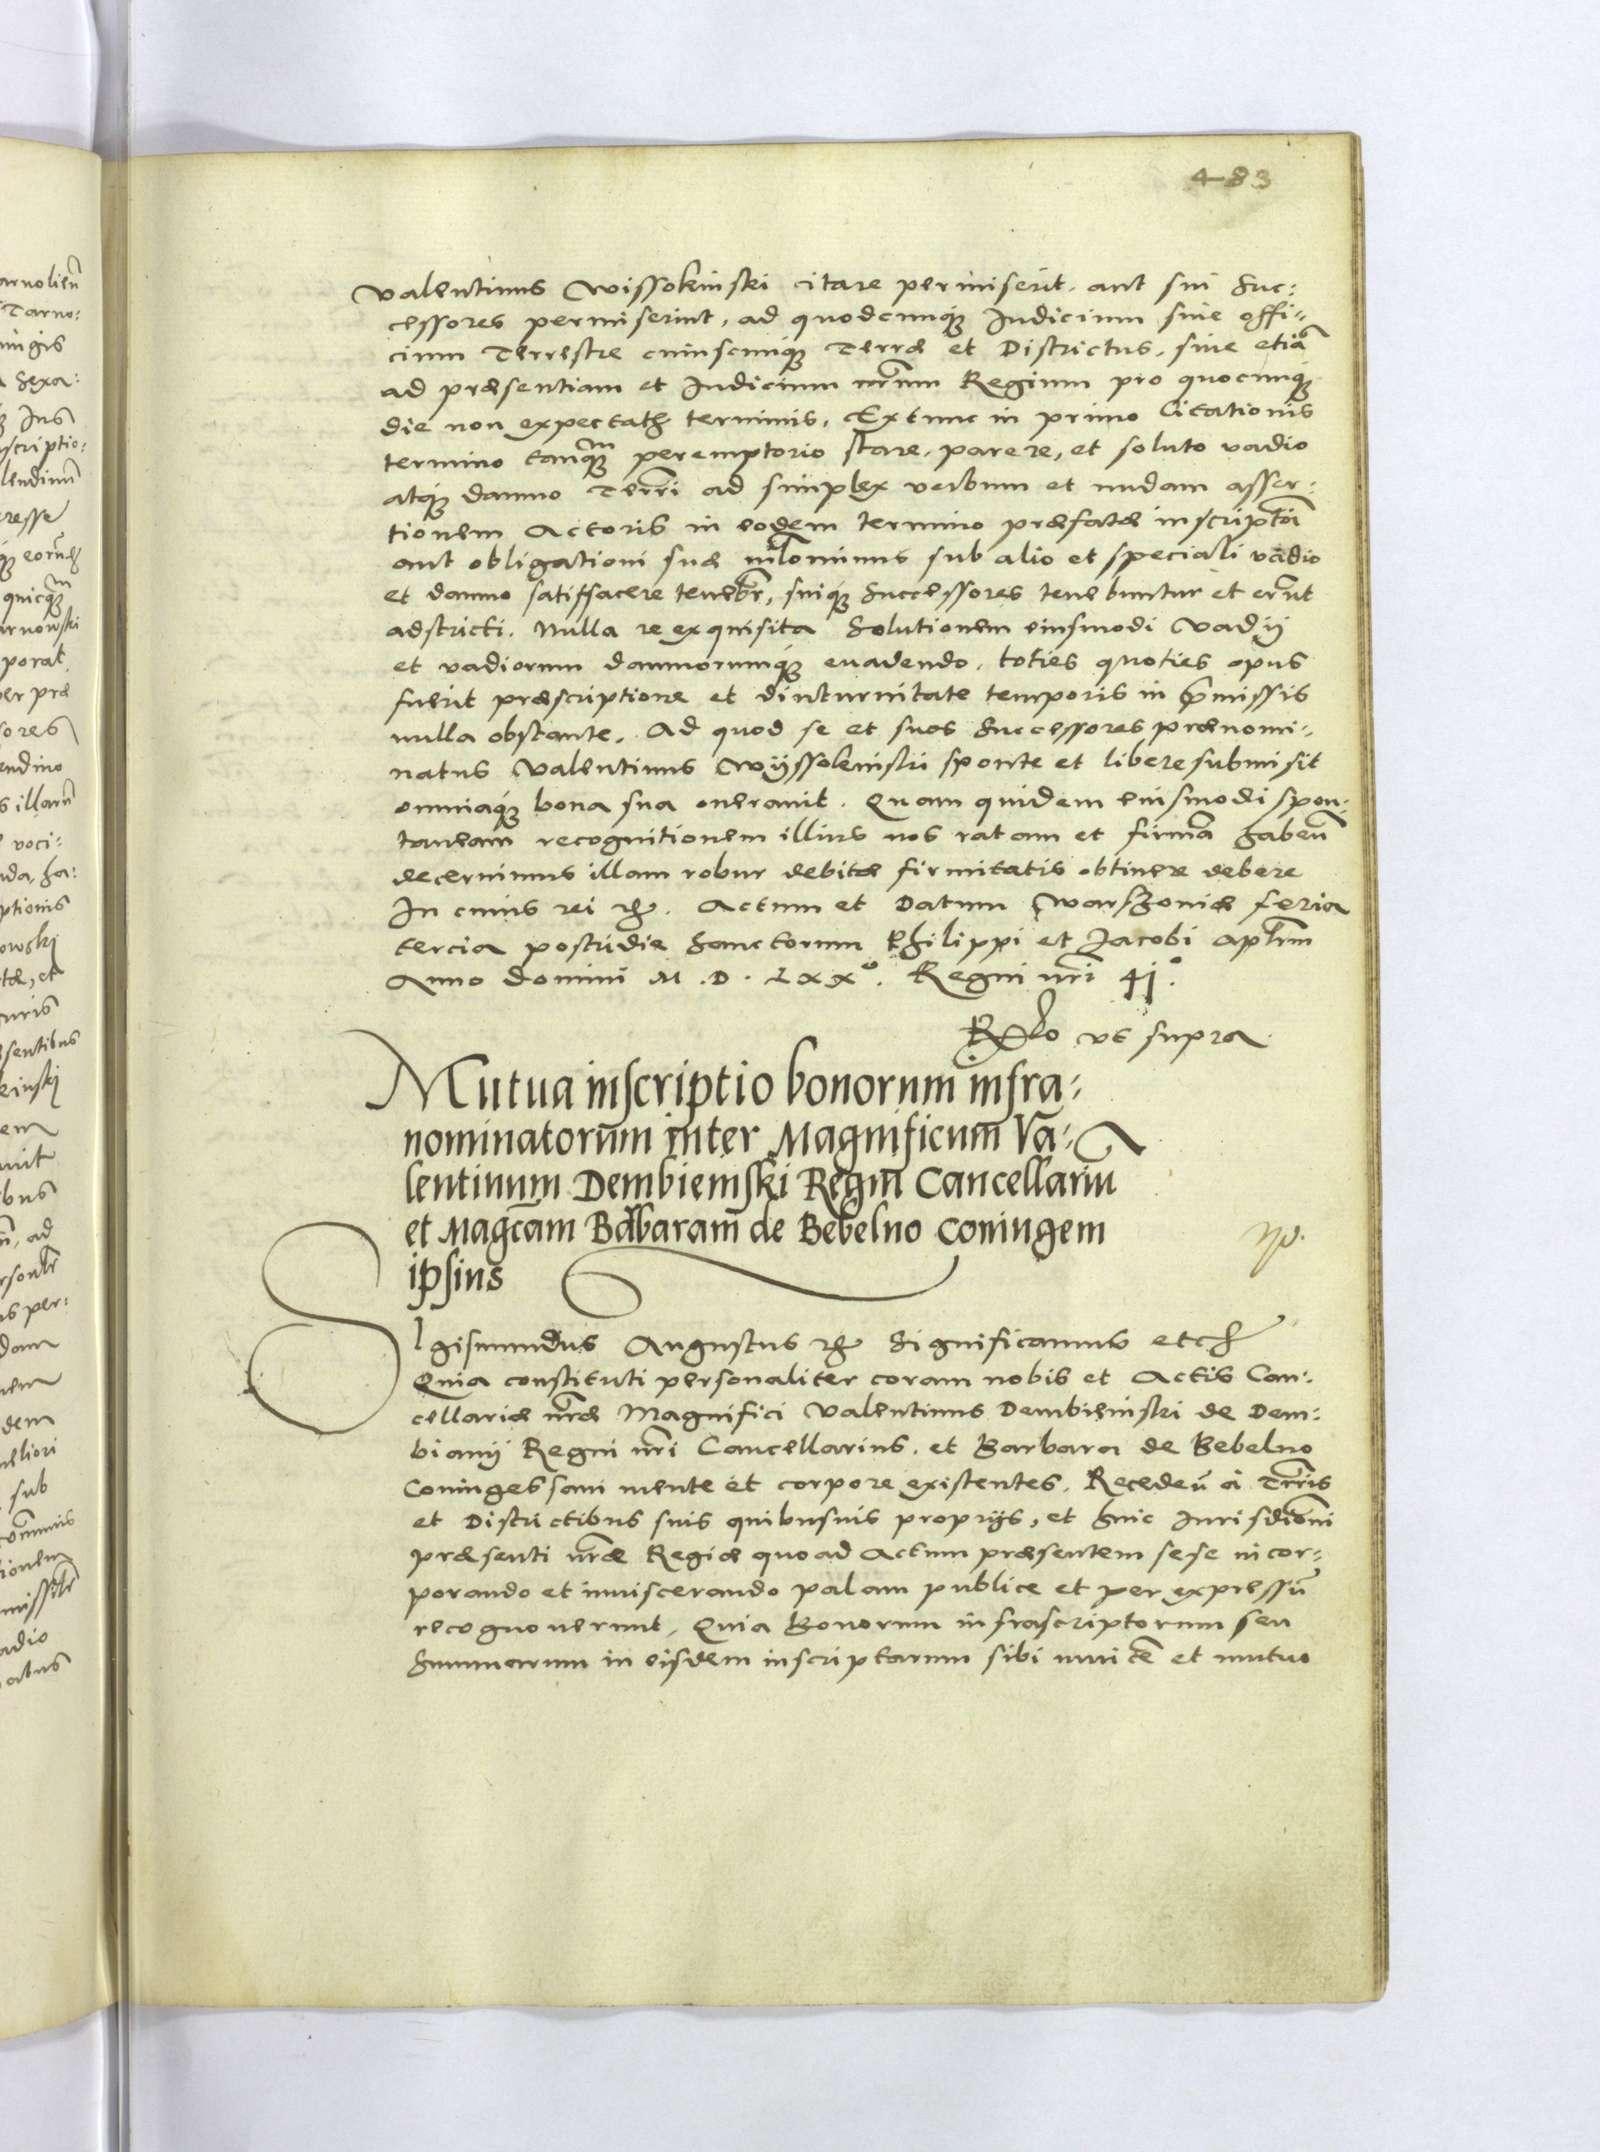 483
Valentinus Wissokinski citare permiserit, aut sui Suc:
cessores permiserint, ad quodcunq́ue Iudicium siue offi:
cium Terrestre cuiuscunq́ue Terræ et Districtus, siue etiã
ad præsentiam et Iudicium nr̃um Regium pro quocunq́ue
die non expectatis terminis, Extunc in primo Citationis
termino tanq̃m peremptorio stare, parere, et soluto vadio
atq́ue damno Terr̃i ad simplex verbum et nudam asser:
tionem Actoris in eodem termino præfatæ inscriptõi
aut obligationi suæ nihõlominus sub alio et speciali vadio
et damno satisfacere tenebr̃, suiq́ue Successores tenebuntur et erũt
adstricti. Nulla re exquisita Solutionem eiusmodi Vadij
et vadiorum damnorumq́ue euadendo, toties quoties opus
fuerit præscriptione et diuturnitate temporis in p̃missis
nulla obstante. Ad quod se et suos Successores prænomi:
natus Valentinus Wyssokinski sponte et libere submisit
omniaq́ue bona sua onerauit. Quam quidem eiusmodi spon:
taneam recognitionem illius nos ratam et firmã habeñ
decernimus illam robur debitæ firmitatis obtinere debere
In cuius rei etc. Actum et Datum Warszouiæ feria
tercia postridie Sanctorum Philippi et Iacobi apl̃orum
Anno domini M.D.LXXº. Regni nr̃i 41º.
Rel̃o ut supra
Mutua inscriptio bonorum infra:
nominatorum inter Magnificum Va:
lentinum Dembienski Regni Cancellariũ
et Magc̃am Barbaram de Bebelno Coniugem
ipsius
Sigismundus Augustus etc Significamus etc
Quia constituti personaliter coram nobis et Actis Can:
cellariæ nr̃æ Magnifici Valentinus Dembienski de Dem:
biany Regni nr̃i Cancellarius, et Barbara de Bebelno
Coniuges sani mente et corpore existentes, Recedeñ à Terr̃is
et Districtibus suis quibusuis proprijs, et huic Iurisdic̃oni
præsenti nr̃æ Regiæ quo ad Actum præsentem sese incor:
porando et inuiscerando palam publice et per expressũ
recognouerunt, Quia Bonorum infrascriptorum seu
Summarum in eisdem inscriptarum sibi inuicẽ et mutuo